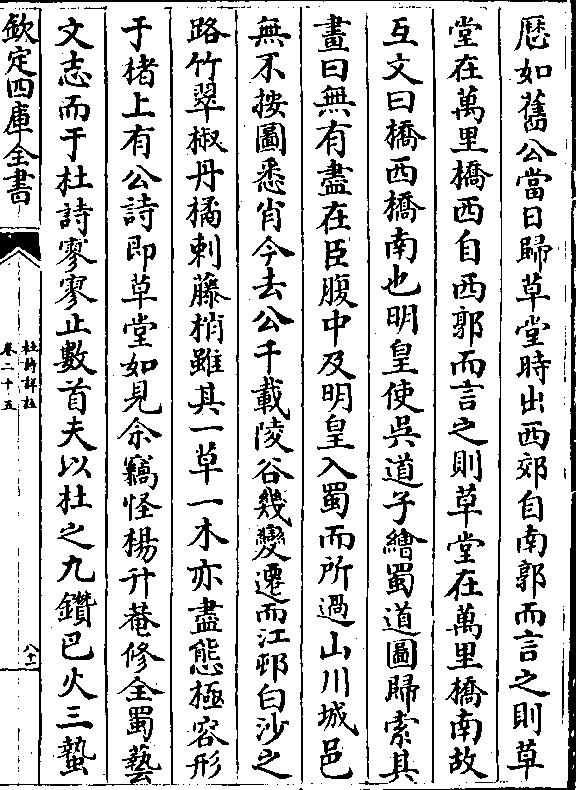 厯如舊公當日歸草堂時出西郊自南郭而言之則草
堂在萬里橋西自西郭而言之則草堂在萬里橋南故
互文曰橋西橋南也明皇使吳道子繪蜀道圖歸索其
畫曰無有盡在臣腹中及明皇入蜀而所過山川城邑
無不按圖悉肖今去公千載陵谷幾變遷而江邨白沙之
路竹翠椒丹橘刺藤梢雖其一草一木亦盡態極容形
于楮上有公詩即草堂如見余竊怪楊升菴修全蜀藝
文志而于杜詩寥寥止數首夫以杜之九鑽巴火三蟄
欽定四庫全書
杜詩詳註
卷二十五